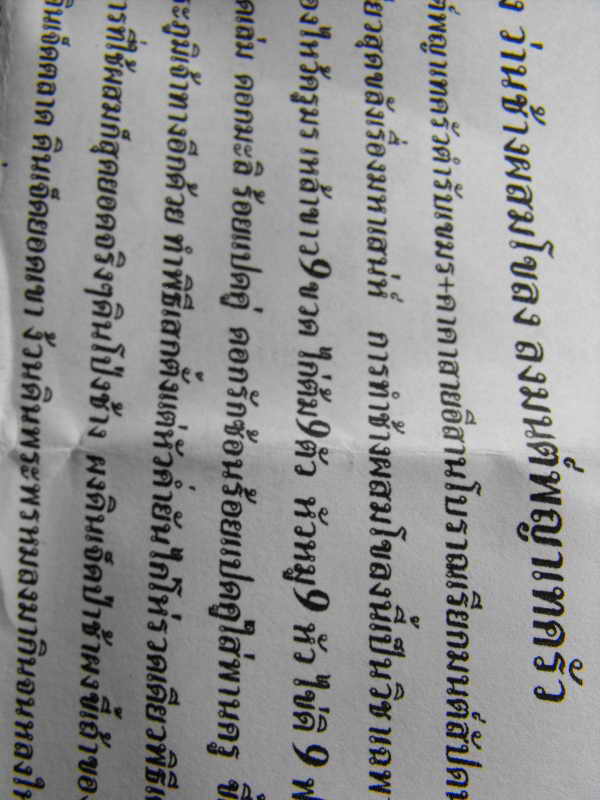 ว่านช้างผสมโขลง ลงมนต์พญาเทครัว
พญาเทครัวตำรับเขมร+คาถาสายอีสานโบราณเรียกมนต์สัปดน
สุดของเรื่องมหาเสน่ห์ การทำช้างผสมโขลงนี้เป็นวิชาเฉพ
ไหว้ครูมร เหล้าขาว9ขวด ไก่ต้ม9ตัว หัวหมู9 หัว ไข่ดิ 9 ฟ
ดอกมะลิ ร้อยแปดคู่ ดอกรักซ้อนร้อยแปดคู่ใส่พานครู
ภูมิเจ้าทางอีกด้วย ทำพิธีเสกตั้งแต่หัวค่ำยันไก่โห่รวดเดียวพิธี
การที่ใช้ผสมก็สุดยอดจริงๆดินโป่งช้าง ผงดินเจ็ดป่าช้าผงขี้เถ้าของ
ดินเจ็ดตลาด ดินเจ็ดยอดเขา รวมดินพระพรหมลงมากินจนหลงใ